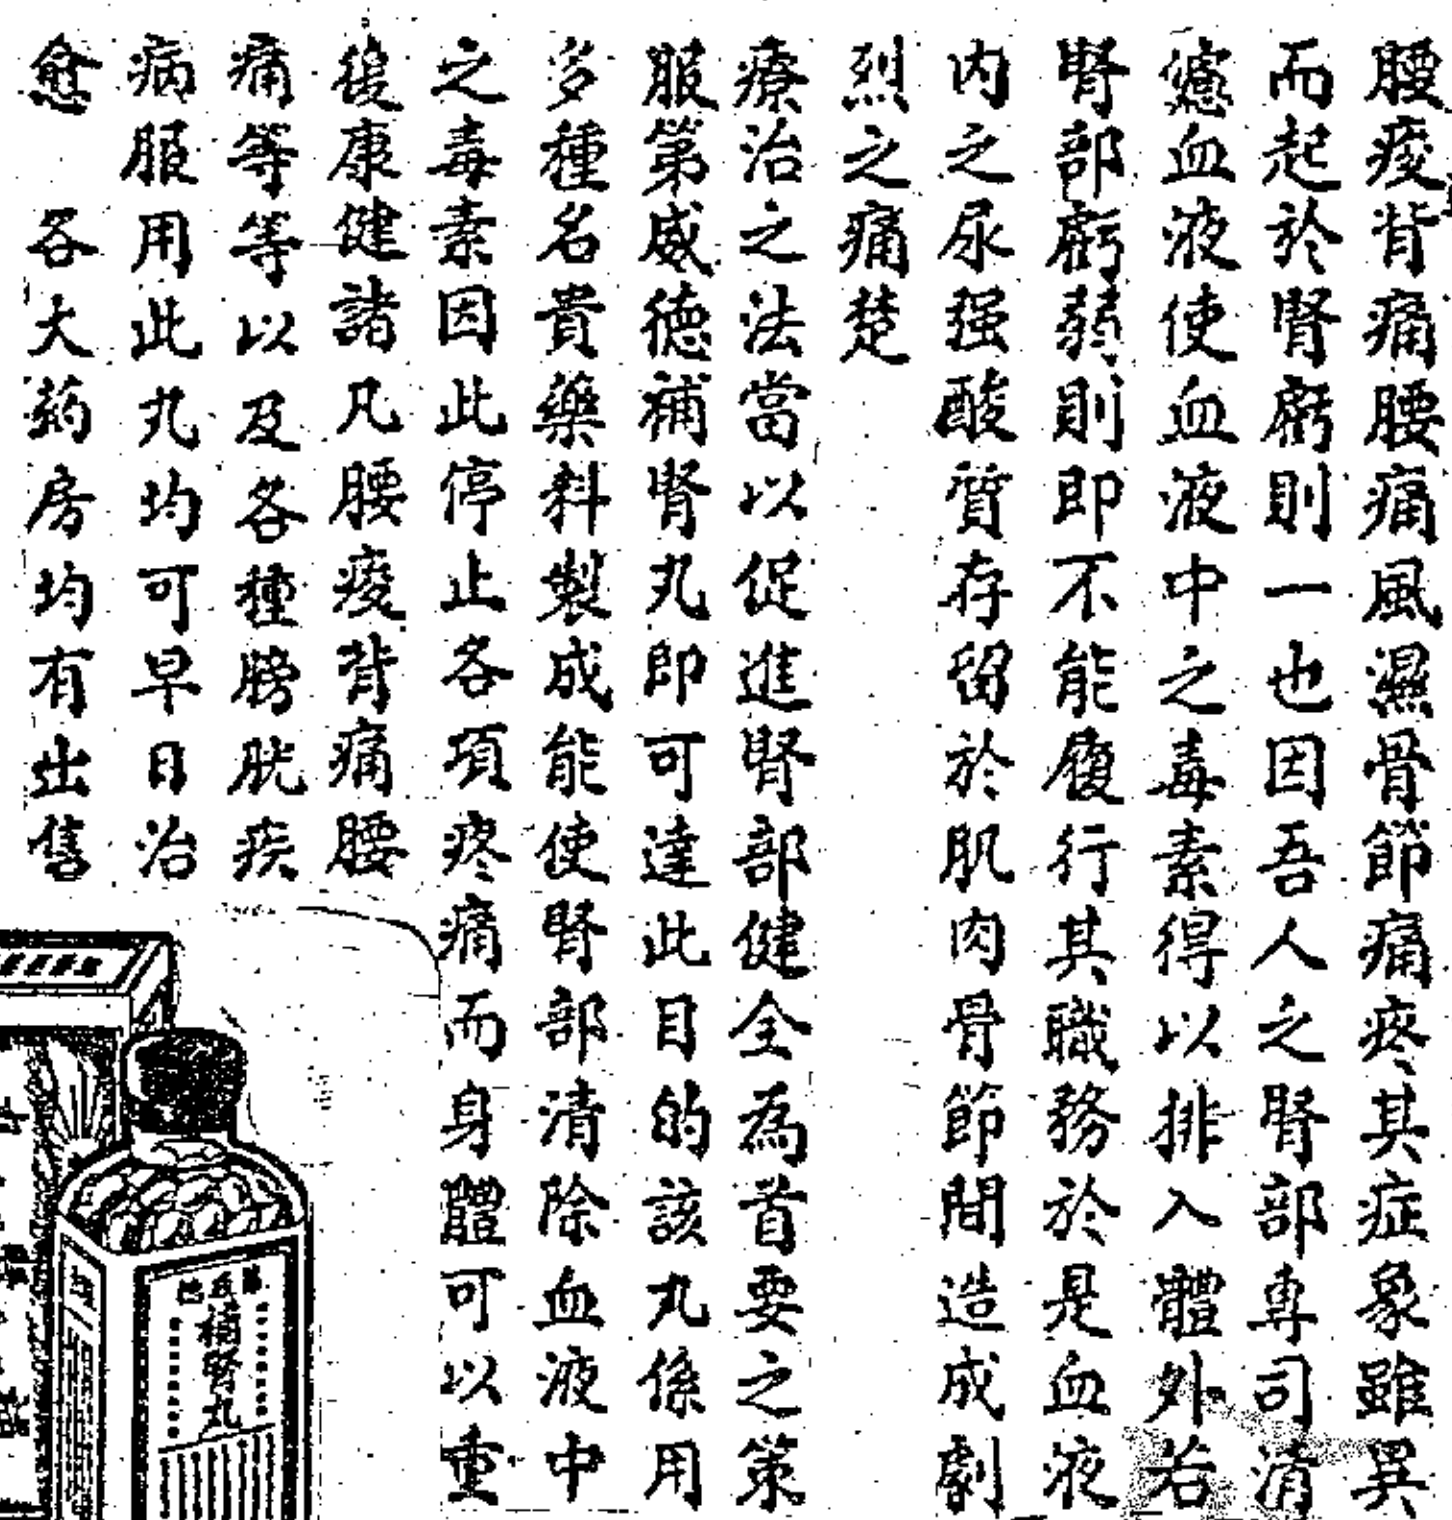 腰痠背痛腰痛風濕骨節痛疼其症象雖異
而起於腎虧則一也因吾人之腎部專司清
濾血液使血液中之毒素得以排入體外若
腎部虧弱則即不能履行其職務於是血液
內之尿强酸質存留於肌肉骨節間造成劇
烈之痛楚
療治之法當以促進腎部健全為首要之策
服第威德補腎丸即可達此目的該丸係用
多種名貴藥料製成能使腎部清除血液中
之毒素因此停止各項疼痛而身體可以重
復康健諸凡腰痠背痛腰
痛等等以及各種膀胱疾
病服用此丸均可早日治
愈　各大药房均有出售
補腎丸